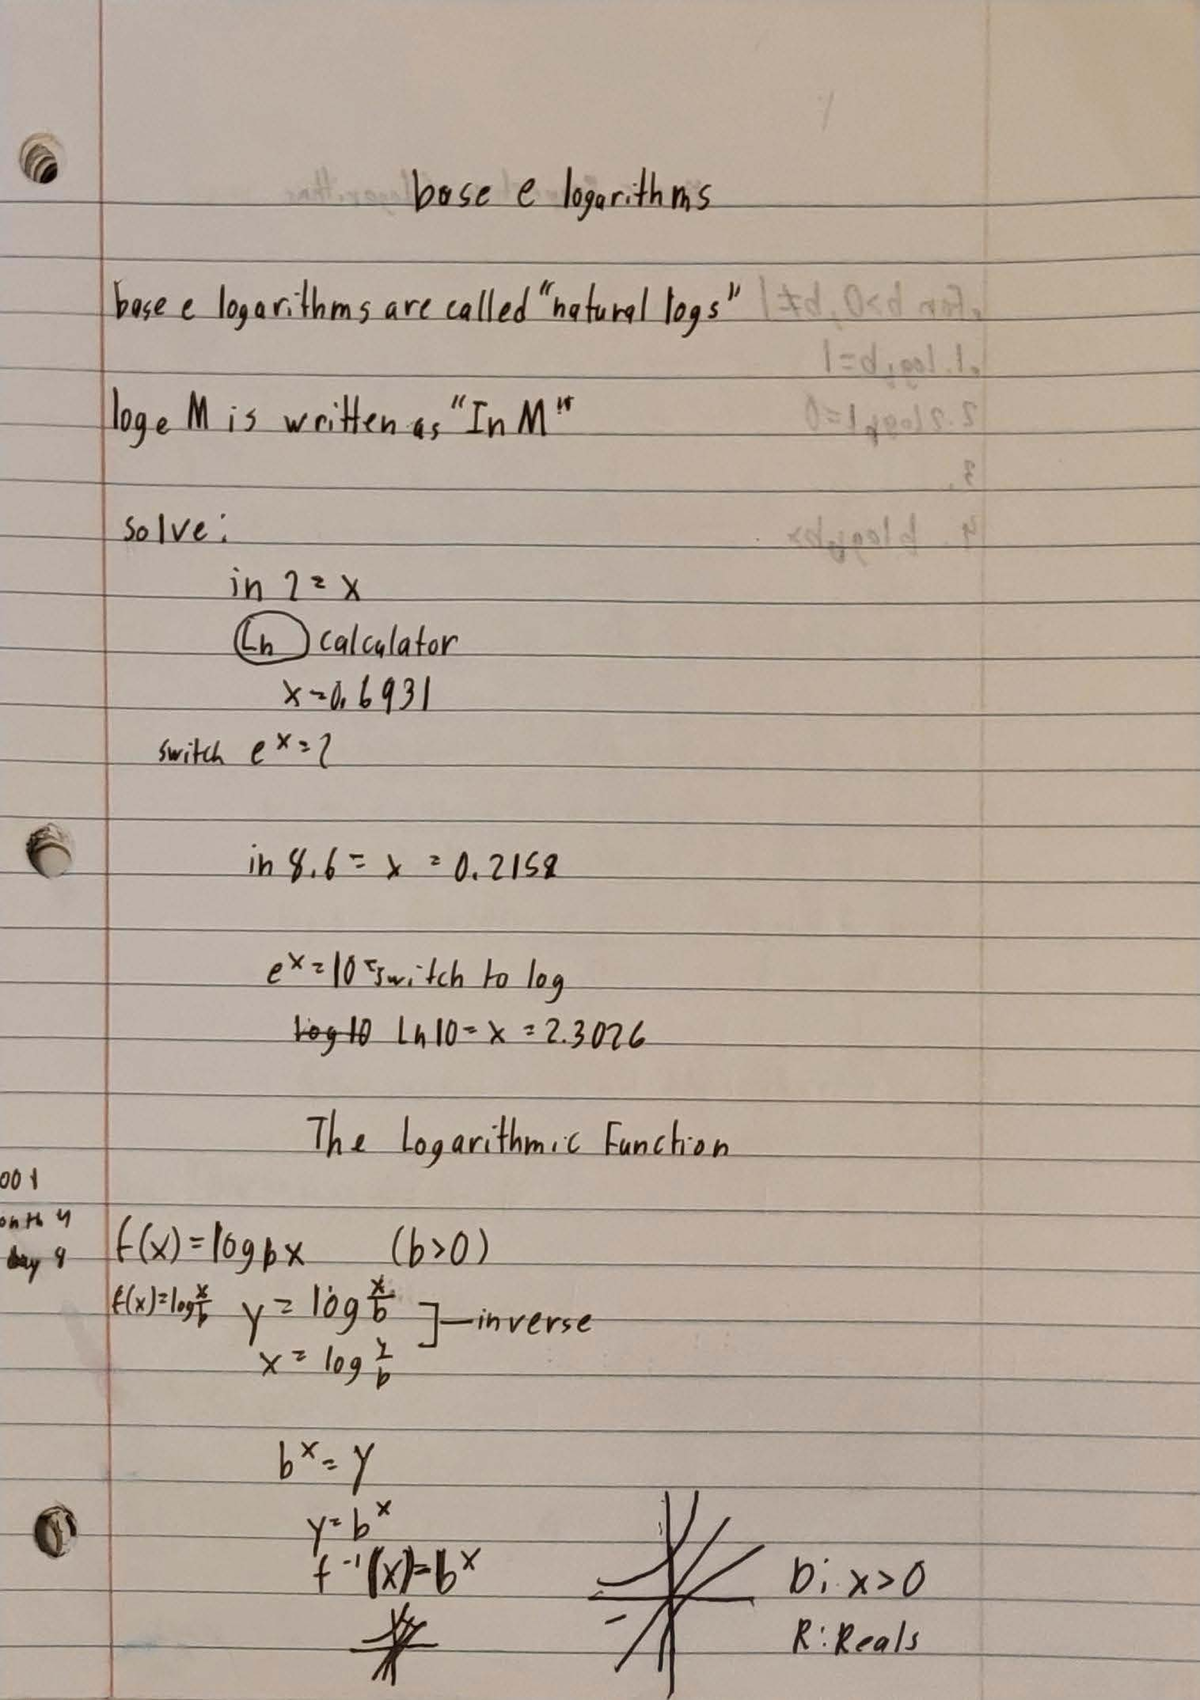 base e logarithms
base e logarithms are called "natural logs"
loge M is written as "In M"
solve:
in 2 = x
Ln calculator
x=0.6931
switch e^x = 2
in 8.6 = x = 0.2158
e^x = 10 switch to log
log 10 Ln 10 = x = 2.3026
The Logarithmic Function
001
onth 4
day 9
f(x) = log b x (b>0)
f(x)=log x/b y = log x/b ]—inverse
x = log y/b
b^x = y
y = b^x
f^-1(x) = b^x
D: x>0
R: Reals